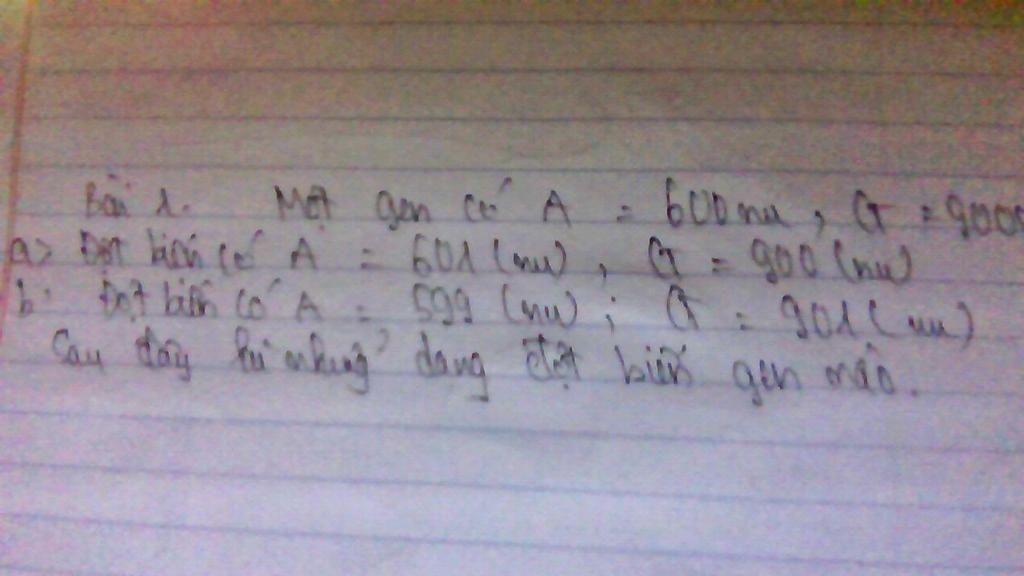 Bài 1. Một gen có A = 600 nu, G = 900
a> Đột biến có A = 601 (nu), G = 900 (nu)
b. Đột biến có A = 599 (nu); G = 901 (nu)
Sau đây là những dạng đột biến gen nào.